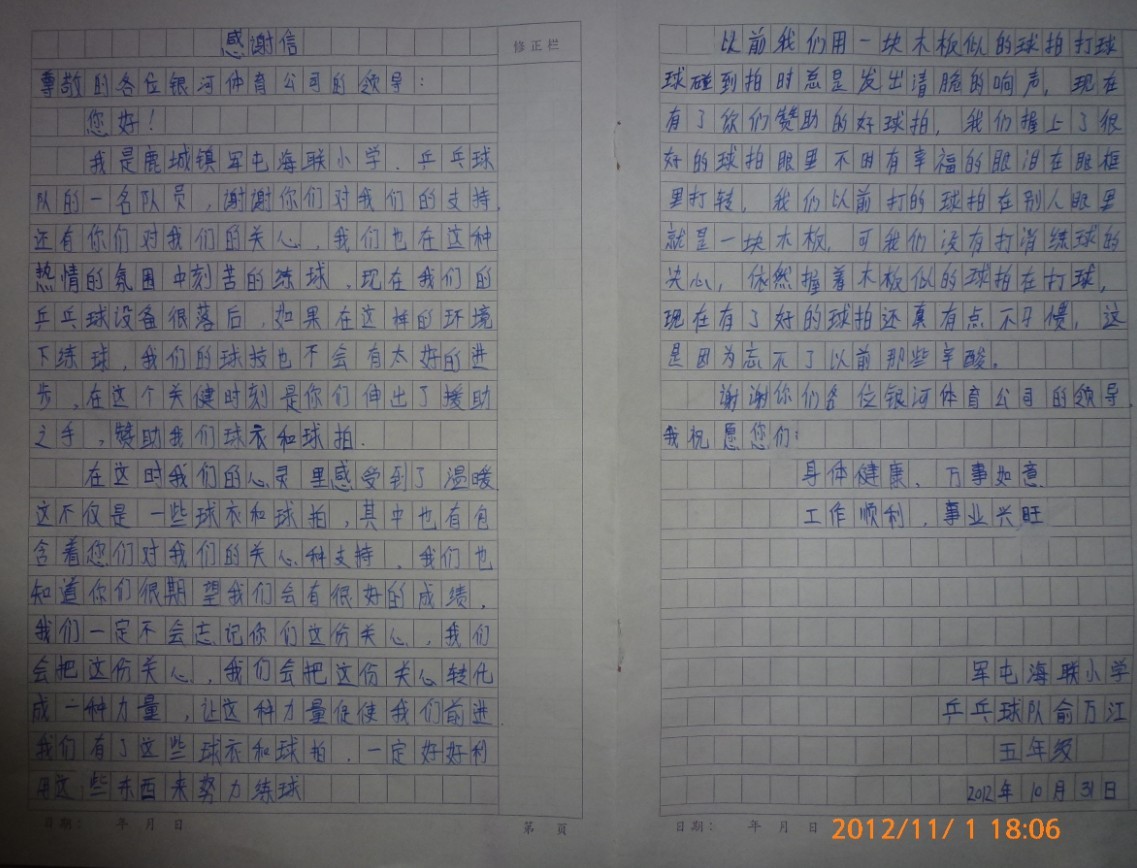 感谢信
修正栏
尊敬的各位银河体育公司的领导：
您好！
我是鹿城镇军屯海联小学．乒乓球
队的一名队员，谢谢你们对我们的支持．
还有你们对我们的关心，我们也在这种
热情的氛围中刻苦的练球．现在我们的
乒乓球设备很落后，如果在这样的环境
下练球．我们的球技也不会有太好的进
步，在这个关健时刻是你们伸出了援助
之手，赞助我们球衣和球拍．
在这时我们的心灵里感受到了温暖
这不仅是一些球衣和球拍，其中也有包
含着您们对我们的关心种支持．我们也
知道你们很期望我们会有很好的成绩．
我们一定不会忘记你们这份关心，我们
会把这份关心，我们会把这份关心转化
成一种力量，让这种力量促使我们前进
我们有了这些球衣和球拍．一定好好利
用这些东西来努力练球
日期： 年 月 日
第 页
以前我们用一块木板似的球拍打球
球碰到拍时总是发出清脆的响声，现在
有了你们赞助的好球拍，我们握上了很
好的球拍眼里不由有幸福的眼泪在眼框
里打转，我们以前打的球拍在别人眼里
就是一块木板，可我们没有打消练球的
决心，依然握着木板似的球拍在打球，
现在有了好的球拍还真有点不习惯，这
是因为忘不了以前那些辛酸。
谢谢你们各位银河体育公司的领导．
我祝愿您们：
身体健康、万事如意
工作顺利，事业兴旺
军屯海联小学
乒乓球队俞万江
五年级
2012年10月31日
日期： 年 月 日
2012/11/ 1 18:06